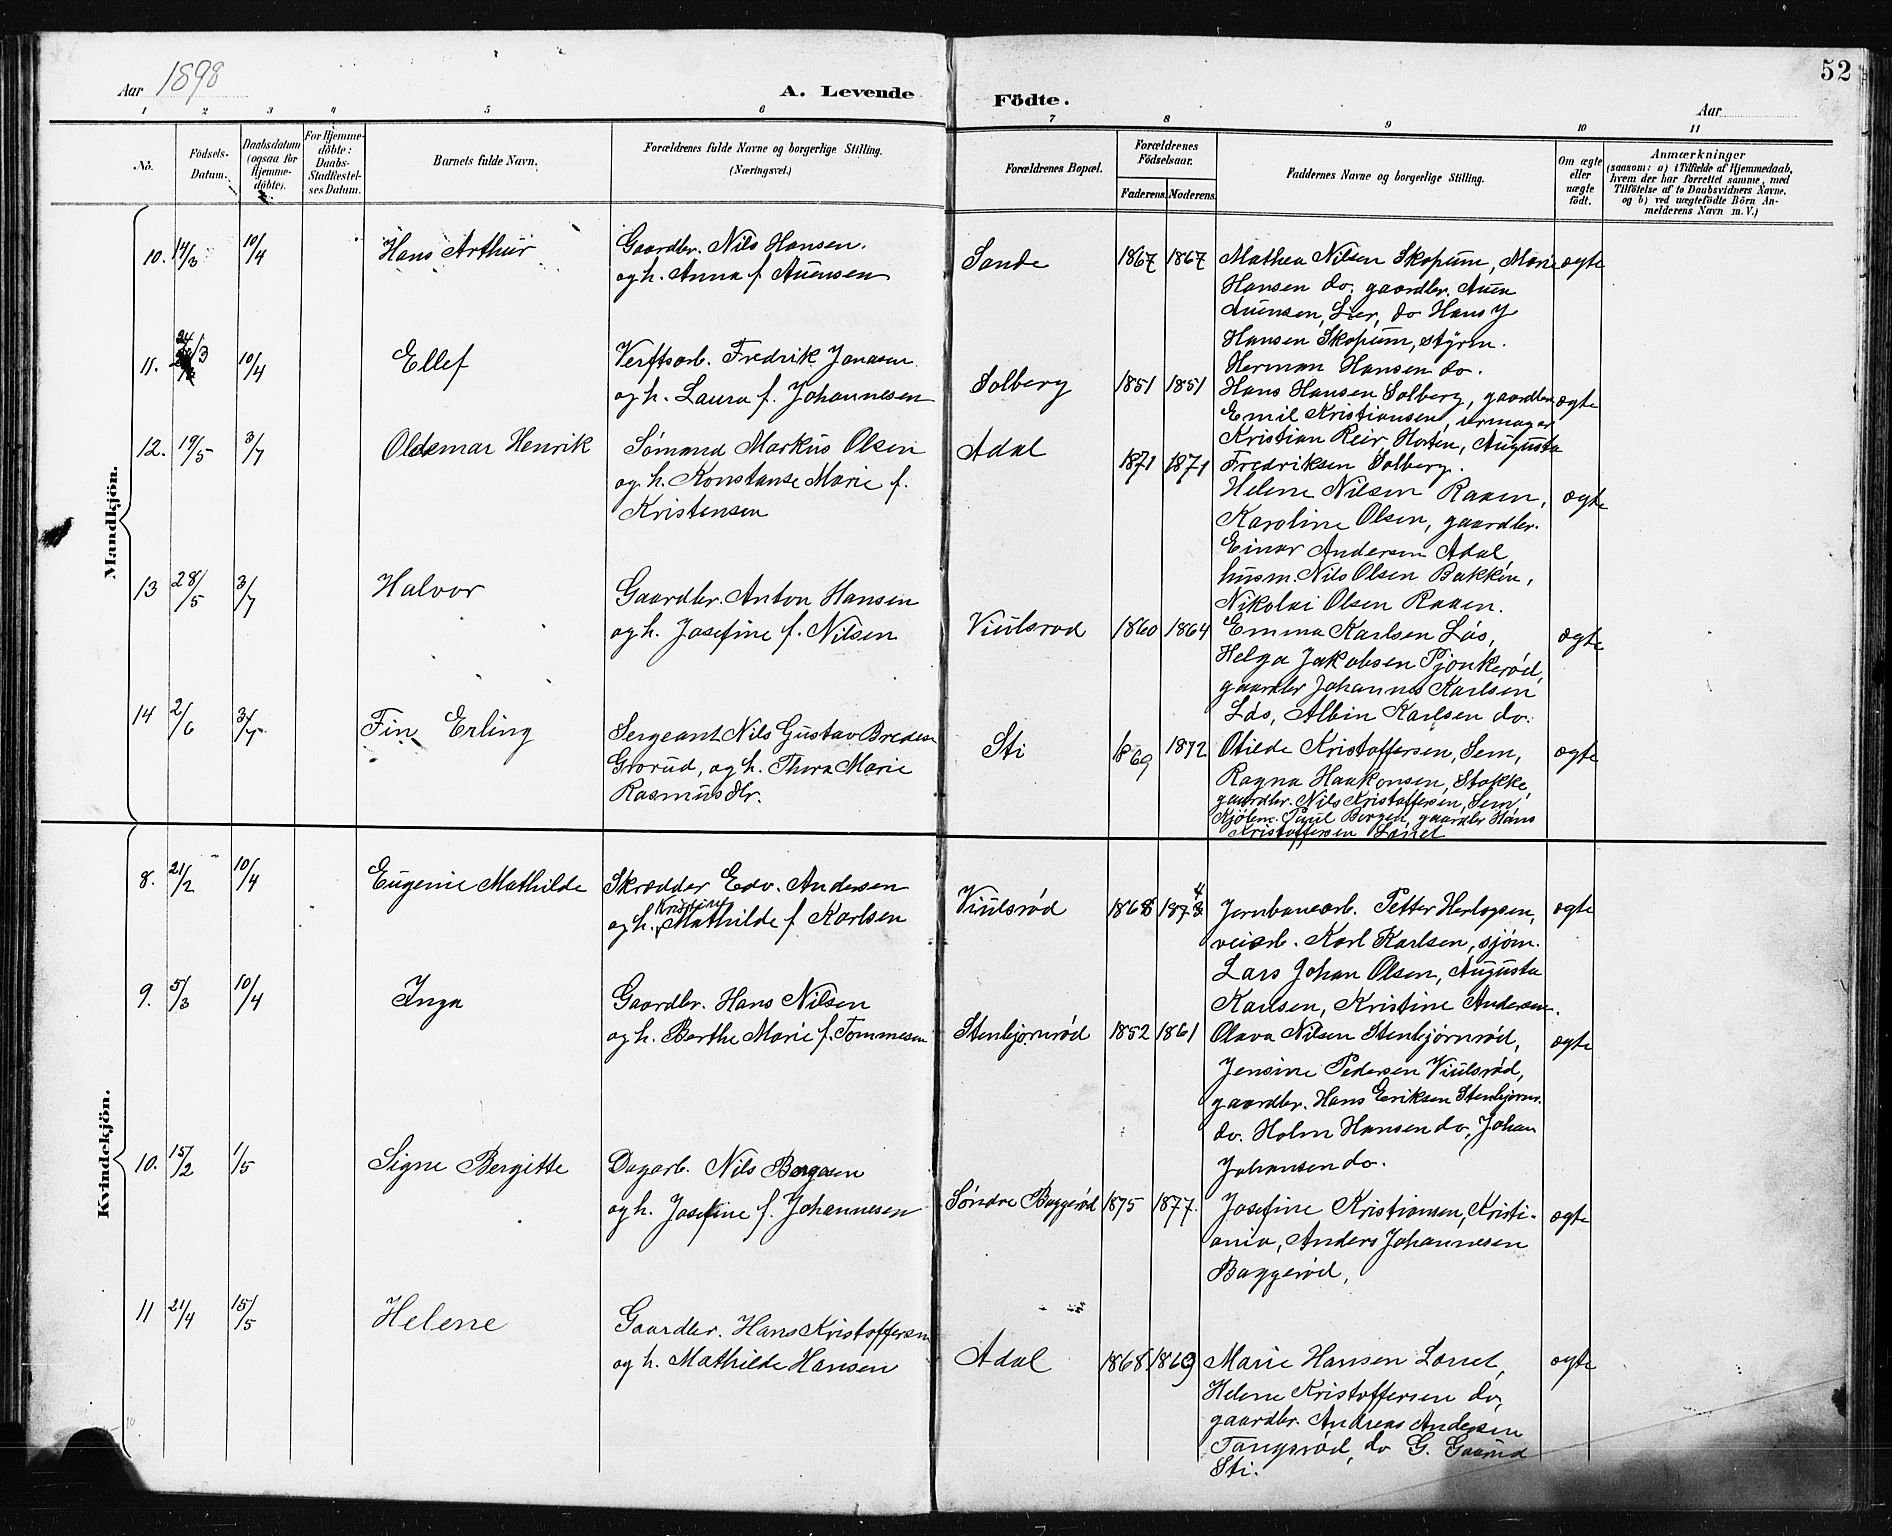 52
Aar 1898
A. Levende Födte.
Aar
1 2 3 4 5 6 7 8 9 10 11
No.
Födsels-Datum.
Daabsdatum (ogsaa for Hjemme-döbte).
For Hjemme-döbte: Daabs-Stadfæstel-ses Datum.
Barnets fulde Navn.
Forældrenes fulde Navne og borgerlige Stilling. (Næringsvei.)
Forældrenes Bopæl.
Forældrenes Födselsaar.
Faderens. Moderens.
Faddernes Navne og borgerlige Stilling.
Om ægte eller uægte födt.
Anmærkninger
(saasom: a) i Tilfælde af Hjemmedaab, hvem der har forrettet samme, med Tilföielse af to Daabsvidners Navne, og b) ved uægtefödte Börn An-melderens Navn m. V.)
Mandkjön.
10. 14/3 10/4 Hans Arthur
Gaardbr. Nils Hansen.
og h. Anna f. Auensen
Sande 1867 1867
Mathea Nilsen Skopum, Marie
Hansen do. gaardbr. Auen
Auensen, Lier, do Hans J
Hansen Skopum, styrm.
Herman Hansen do.
ægte
11. 24/3 10/4 Ellef
Verftsarb. Fredrik Jonasen
og h. Laura f. Johannesen
Solberg 1851 1851
Hans Hansen Solberg, gaardbr.
Emil Kristiansen, urmager
Kristian Reir Horten, Augusta
Fredriksen Solberg.
ægte
12. 19/5 3/7 Oldemar Henrik
Sømand Markus Olsen
og h. Konstanse Marie f.
Kristensen
Adal 1871 1871
Helene Nilsen Raaen,
Karoline Olsen, gaardbr.
Einar Andersen Adal,
husm. Nils Olsen Bakken,
Nikolai Olsen Raaen.
ægte
13 28/5 3/7 Halvor
Gaardbr. Anton Hansen
og h. Josefine f. Nilsen
Viulsrød 1860 1864
Emma Karlsen Løs,
Helga Jakobsen Pjonkerød,
gaardbr Johannes Karlsen
Løs, Albin Karlsen do.
ægte
14 2/6 3/7 Fin Erling
Sergeant Nils Gustav Bredesen
Grorud, og h. Thora Marie
Rasmusdtr.
Sti 1869 1872
Otilde Kristoffersen, Sem,
Ragna Haakonsen, Stokke,
gaardbr. Nils Kristoffersen, Sem,
Kjøbm. Paul Bergen, gaardbr Hans
Kristoffersen
ægte
Kvindekjön.
8. 21/2 10/4 Eugenie Mathilde
Skrædder Edv. Andersen
Kristine
og h. Mathilde f Karlsen
Viulsrød 1868 1874
Jernbanearb. Petter Herlogsen,
veiarb. Karl Karlsen, sjøm.
Lars Johan Olsen, Augusta
Karlsen, Kristine Andersen.
ægte
9. 5/3 10/4 Inga
Gaardbr. Hans Nilsen
og h. Berthe Marie f. Tommesen
Stenbjørnrød 1852 1861
Olava Nilsen Stenbjørnrød,
Jensine Pedersen Viulsrød,
gaardbr. Hans Eriksen Stenbjørnr.
do. Holm Hansen do, Johan
Johansen do.
ægte
10. 15/2 1/5 Signe Bergitte
Dagarb. Nils Borgesen
og h. Josefine f. Johannesen
Søndre Baggerød 1875 1877.
Josefine Kristiansen, Kristi-
ania, Anders Johannesen
Baggerød,
ægte
11 21/4 15/5 Helene
Gaardbr. Hans Kristoffersen
og h. Mathilde Hansen
Adal 1868 1869
Marie Hansen
Helene Kristoffersen do,
gaardbr. Andreas Andersen
Tangsrød, do G. Gaarud
Sti.
ægte